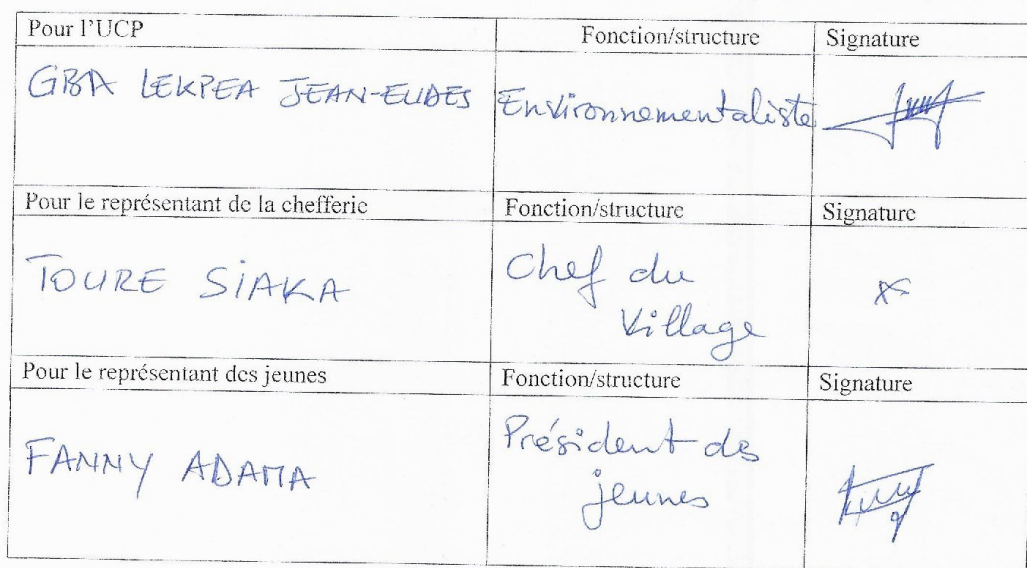 Pour l'UCP Fonction/structure Signature
GBA LEKPEA JEAN-EUDES Environnementaliste
Pour le représentant de la chefferie Fonction/structure Signature
TOURE SIAKA Chef du
Village
Pour le représentant des jeunes Fonction/structure Signature
FANNY ADAMA Président des
jeunes